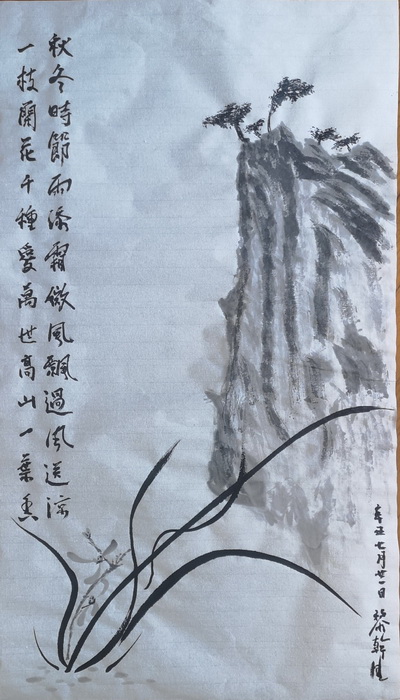 秋冬時節雨添霜微風飄過風送涼
一枝開花千種愛萬世高山一葉香
辛丑七月廿一日 黎幹